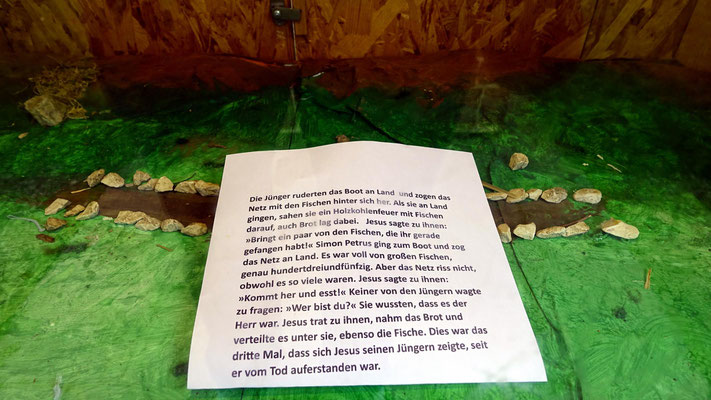 Die Jünger ruderten das Boot an Land und zogen das
Netz mit den Fischen hinter sich her. Als sie an Land
gingen, sahen sie ein Holzkohlenfeuer mit Fischen
darauf, auch Brot lag dabei. Jesus sagte zu ihnen:
»Bringt ein paar von den Fischen, die ihr gerade
gefangen habt!« Simon Petrus ging zum Boot und zog
das Netz an Land. Es war voll von großen Fischen,
genau hundertdreiundfünfzig. Aber das Netz riss nicht,
obwohl es so viele waren. Jesus sagte zu ihnen:
»Kommt her und esst!« Keiner von den Jüngern wagte
zu fragen: »Wer bist du?« Sie wussten, dass es der
Herr war. Jesus trat zu ihnen, nahm das Brot und
verteilte es unter sie, ebenso die Fische. Dies war das
dritte Mal, dass sich Jesus seinen Jüngern zeigte, seit
er vom Tod auferstanden war.